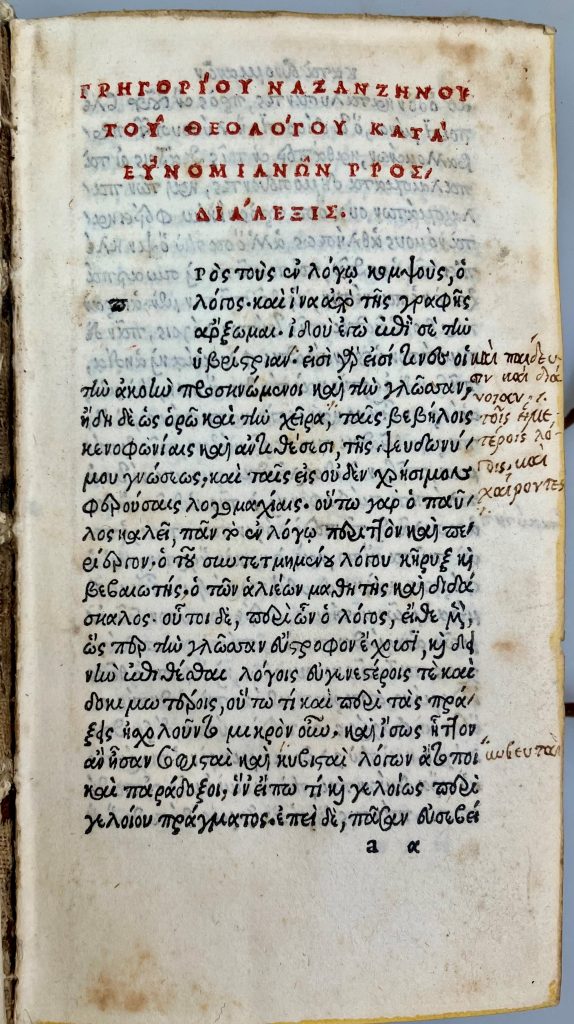 ΓΡΗΓΟΡΙΌΥ ΝΑΖΑΝΖΗΝΟΥ
ΤΟΥ͂ ΘΕΟΛΌΓΟΥ ΚΑΤᾺ
ΕΥ̓ΝΟΜΙΑΝΩ͂Ν ΠΡΟΣ,
ΔΙΆΛΕΞΙΣ.
π
ΡῸς τοὺς ἐν λόγῳ κομψοὺς, ὁ
λόγος. καὶ ἵνα ἀπὸ τῆς γραφῆς
ἄρξωμαι. ἰδοὺ ἐγὼ ἐπὶ σὲ τὴν
ὑβρίστριαν. εἰσὶ γὰρ εἰσί τινες οἱ
τὴν ἀκοὴν προσκνώμενοι καὶ τὴν γλῶσσαν,
ἤδη δὲ ὡς ὁρῶ καὶ τὴν χεῖρα, ταῖς βεβήλοις
κενοφωνίαις καὶ ἀντιθέσεσι, τῆς ψευδωνύ
μου γνώσεως, καὶ ταῖς εἰς οὐδὲν χρήσιμον
φερούσαις λογομαχίαις. οὕτω γὰρ ὁ παῦ
λος καλεῖ, πᾶν τὸ ἐν λόγῳ περιττὸν καὶ πε
ρίεργον. ὁ τοῦ συντετμημένου λόγου κῆρυξ καὶ
βεβαιωτής. ὁ τῶν ἁλιέων μαθητὴς καὶ διδά
σκαλος. οὗτοι δὲ, περὶ ὧν ὁ λόγος, εἴθε μὲν,
ὥσπερ τὴν γλῶσσαν εὔστροφον ἔχουσι, καὶ δει
νὴν ἐπιθέσθαι λόγοις εὐγενεστέροις τὲ καὶ
δοκιμωτέροις, οὕτω τί καὶ περὶ τὰς πρά
ξεις ἠσχολοῦντο μικρὸν οὖν. καὶ ἴσως ἧττον
ἂν ἦσαν σοφισταὶ καὶ κυβισταὶ λόγων ἄτοποι
καὶ παράδοξοι, ἵν᾽ εἴπω τί καὶ γελοίως περὶ
γελοίου πράγματος. ἐπεὶ δὲ, πᾶσαν εὐσεβεί
a α
καὶ παίδευ
σιν καὶ διά
νοιαν,
τοῖς ἡμε
τέροις λό
γοις, καὶ
χαίροντες